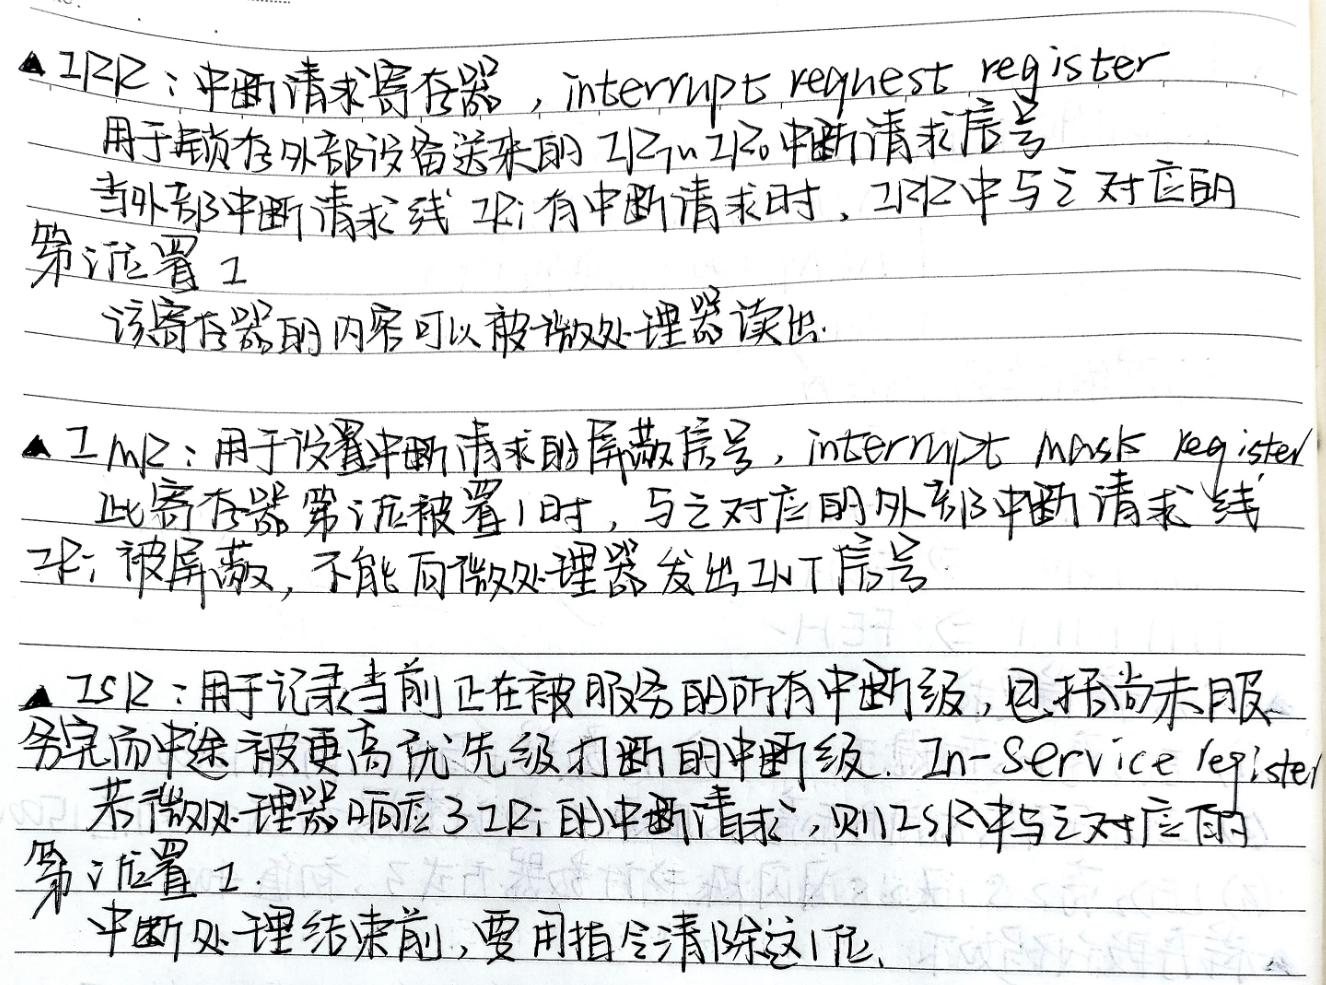 ▲ IRR：中断请求寄存器，interrupt request register
用于锁存外部设备送来的 IR7~IR0 中断请求信号
当外部中断请求线 IRi 有中断请求时，IRR中与之对应的
第i位置1
该寄存器的内容可以被微处理器读出.
▲ IMR：用于设置中断请求的屏蔽信号，interrupt mask register
此寄存器第i位被置1时，与之对应的外部中断请求线
IRi 被屏蔽，不能向微处理器发出INT信号
▲ ISR：用于记录当前正在被服务的所有中断级，包括尚未服
务完而中途被更高优先级打断的中断级. In-Service register
若微处理器响应了IRi的中断请求，则ISR中与之对应的
第i位置1.
中断处理结束前，要用指令清除这1位、